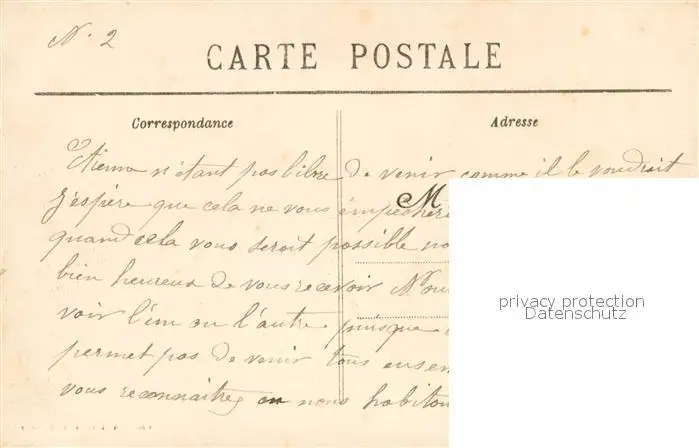 N. 2
CARTE POSTALE
Correspondance
Adresse
Etienne n'étant pas libre de venir comme il le voudrait
j'espère que cela ne vous
M
quand cela vous serait possible
bien heureux de vous recevoir
voir l'un ou l'autre puisque
permet pas de venir tous
vous reconnaîtrez où nous
privacy protection
Datenschutz